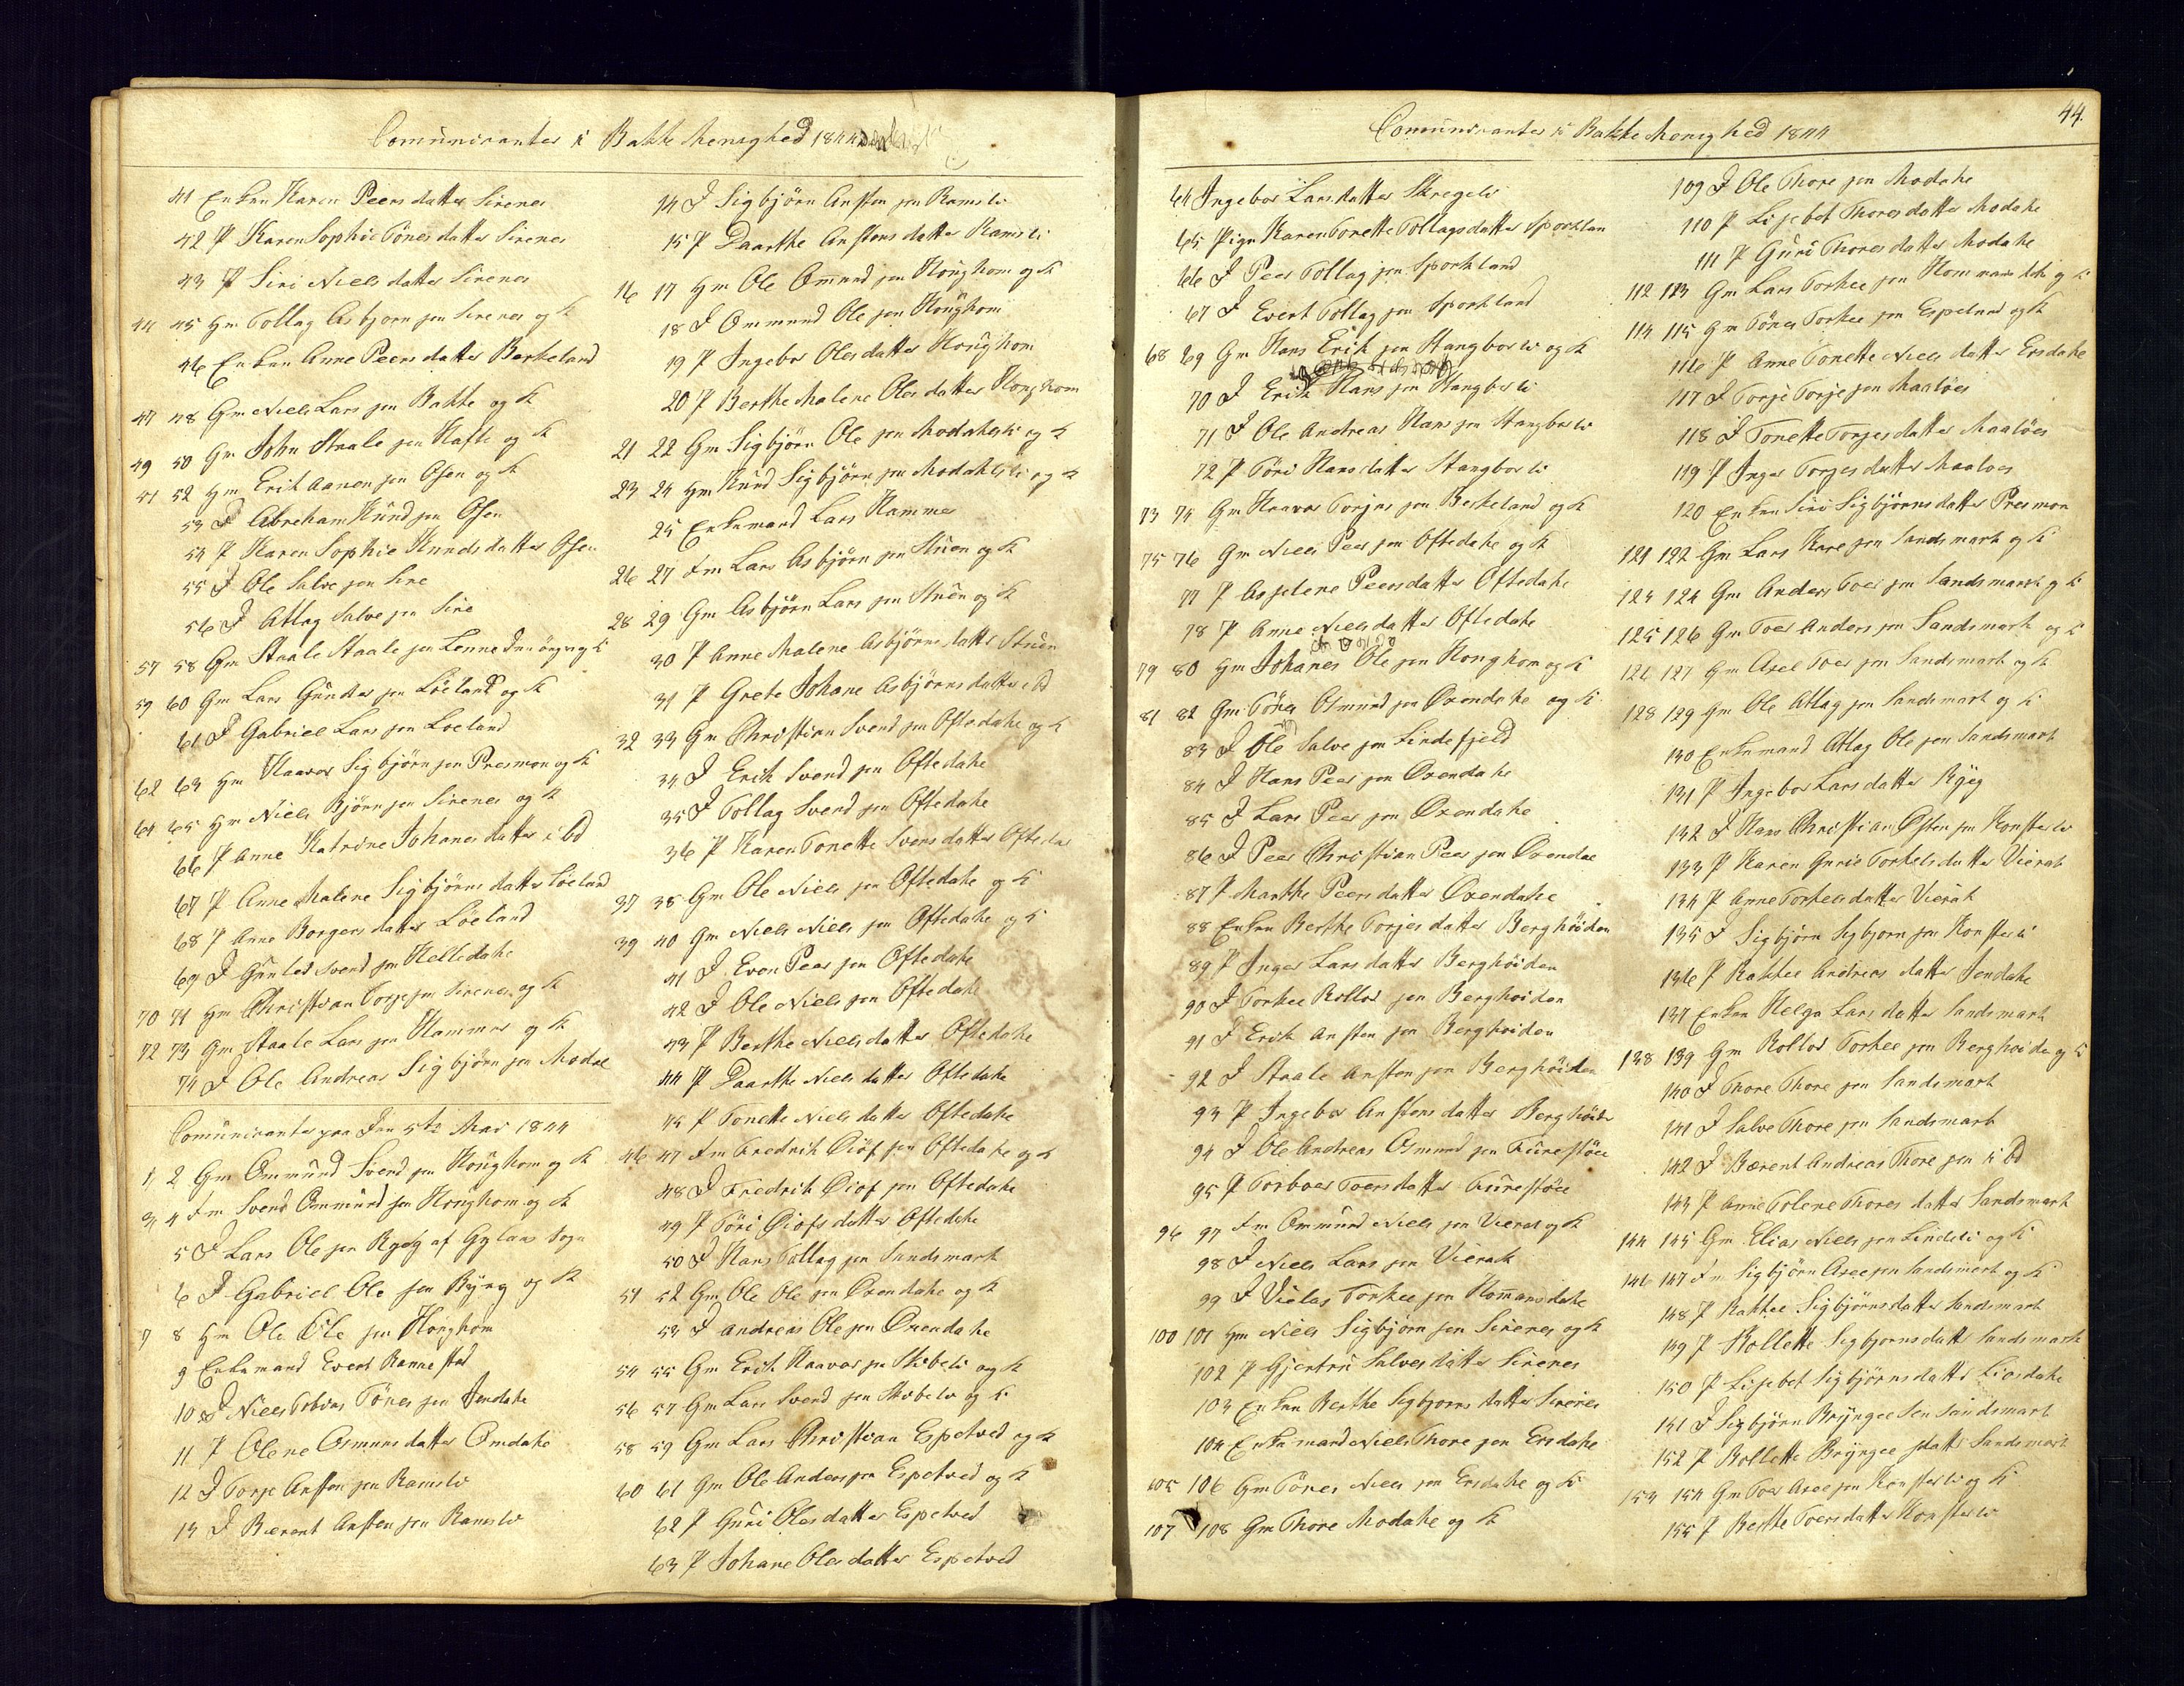 Comunicanter i Bakke Menighed 1844
41 Enken Karen Peersdatter Sirenes
42 P Karen Sophie Tönesdatter Sirenes
43 P Siri Nielsdatter Sirenes
44 45 Gm Tollag Asbjornsen Sirenes og K
46 Enken Anne Peersdatter Berkeland
47 48 Gm Niels Larsen Bakke og K
49 50 Gm John Staalesen og K
51 52 Gm Erik Aanensen Osen og K
53 J Abreham Knudsen Osen
54 P Karen Sophie Knudsdatter Osen
55 J Ole Salvesen Sire
56 J Atlag Salvesen Sire
57 58 Gm Staale Staalesen og K
59 60 Gm Lars Gundersen Löeland og K
61 J Gabriel Larsen Loeland
62 63 Gm Haavor Sigbjörnsen Presmon og K
64 65 Gm Niels Björnsen Sirenes og K
66 P Anne Katrine Johanesdatter ibd
67 P Anne Malene Sigbjörnsdatter Löeland
68 P Anne Borgersdatter Löeland
69 J Gunled Svendsen Helledahe
70 71 Gm Christian Torjesen Sirenes og K
72 73 Gm Staale Larsen Hammer og K
74 J Ole Andreas Sigbjörnsen Modal
Comunicanter paa den 5te Mai 1844
1, 2 Gm Ommund Svendsen Houghom og K
3, 4 Fm Svend Ommundsen Houghom og K
5 J Lars Olesen Rygg af Gylans Sogn
6 J Gabriel Olesen Rÿg og K
7 8 Gm Ole Olesen Honghom
9 Enkemand Evert Rannestad
10 J Niels Tobias Tönesen Jendahe
11 P Olene Osmunsdatter Omdahe
12 J Torje Anstensen Ramsli
13 J Berent Anstensen Ramsli
14 J Sigbjörn Anstensen Ramsli
15 P Daarthe Anstensdatter Ramsli
16 17 Gm Ole Omundsen Houghom og K
18 J Ommund Olesen Houghom
19 P Ingebor Olesdatter Houghom
20 P Berthe Malene Olesdatter Honghom
21 22 Gm Sigbjörn Olesen Modahsli og K
23 24 Gm Knud Sigbjörnsen Modahlsli og K
25 Enkemand Lars Hammer
26 27 Fm Lars Asbjörnsen Stuen og K
28 29 Gm Asbjörn Larsen Stuen og K
30 P Anne Malene Asbjörnsdatter Stuen
31 P Grete Johane Asbjörnsdatter ibd
32 33 Gm Christian Svendsen Oftedahe og K
34 J Erik Svendsen Oftedahe
35 J Tollag Svendsen Oftedahe
36 P Karen Tonette Svensdatter Oftedal
37 38 Gm Ole Nielsen Oftedahe og K
39 40 Gm Niels Nielsen Oftedahe og K
41 J Even Peersen Oftedahe
42 J Ole Nielsen Oftedahe
43 P Berthe Nielsdatter Oftedahe
44 P Daarthe Nielsdatter Oftedahe
45 P Tonette Nielsdatter Oftedahe
46 47 Fm Fredrik Diöfsen Oftedahe og K
48 J Fredrik Diofsen Oftedahe
49 P Töri Diofsdatter Oftedahe
50 J Hans Tollagsen Sandsmark
51 52 Gm Ole Olesen Oxendahe og K
53 J Andreas Olesen Oxendahe
54 55 Gm Erik Haavorsen Skibeli og K
56 57 Gm Lars Svendsen Skibeli og K
58 59 Gm Lars Christian Espetved og K
60 61 Gm Ole Andersen Espetved og K
62 P Guri Olesdatter Espetved
63 P Johane Olesdatter Espetved
44.
Comunicanter i Bakke Menighed 1844
64 Ingebor Larsdatter Skregeli
65 Pige Karen Tonette Tollagsdatter Sporklan
66 J Peer Tollagsen Sporkland
67 J Evert Tollagsen Sporkland
68 69 Gm Hans Eriksen Stangborli og K
70 J Erik Hansen Stangborli
71 J Ole Andreas Hansen Stangborli
72 P Töri Hansdatter Stangborli
73 74 Gm Haavor Torjusen Berkeland og K
75 76 Gm Niels Peersen Oftedahe og K
77 P Asselene Peersdatter Oftedahe
78 P Anne Nielsdatter Oftedahe
79 80 Gm Johanes Olesen Honghom og K
81 82 Gm Töner Osmundsen Oxendahe og K
83 J Ole Salvesen Lindefjeld
84 J Hans Peersen Oxendahe
85 J Lars Peersen Oxendahe
86 J Peer Christian Peersen Oxendae
87 P Marthe Peersdatter Oxendahe
88 Enken Berthe Torjesdatter Berghöiden
89 P Inger Larsdatter Berghöiden
90 J Torkel Rollofsen Berghoiden
91 J Erik Anstensen Berghoiden
92 J Staale Anstensen Berghöiden
93 P Ingebor Anstensdatter Berghöide
94 J Ole Andreas Osmundsen Furestöel
95 P Torboer Toersdatter Furestöel
96 97 Fm Ommund Nielsen Vierak og K
98 J Niels Larsen Vierak
99 J Vielas Torkelsen Homansdahe
100 101 Gm Niels Sigbjörnsen Sirenes og K
102 P Gjertru Salvesdatter Sirenes
103 Enken Berthe Sigbjornsdatter Sirenes
104 Enkemand Niels Thoresen Ersdahe
105 106 Gm Tönes Nielsen Ersdahe og K
107 108 Gm Thore Modahe og K
109 J Ole Thoresen Modahe
110 P Lisebet Thoresdatter Modahe
111 P Guri Thoresdatter Modahe
112 113 Gm Lars Torkelsen og K
114 115 Gm Tönes Torkelsen Espelund og K
116 P Anne Tonette Nielsdatter Ersdahe
117 J Torje Torjesen Maalöes
118 J Tonette Torjesdatter Maalöes
119 P Inger Torjesdatter Maaloes
120 Enken Siri Sigbjörnsdatter Presmon
121 122 Gm Lars Karesen Sandsmark og K
123 124 Gm Anders Toersen Sandsmark og K
125 126 Gm Toer Andersen Sandsmark og K
126 127 Gm Axel Toersen Sandsmark og K
128 129 Gm Ole Atlagsen Sandsmark og K
130 Enkemand Atlag Olesen Sandsmark
131 P Ingebor Larsdatter Rÿg
132 J Hans Christian Ostensen Konsterli
133 P Karen Gurie Torkelsdatter Vierak
134 P Anne Torkelsdatter Vierak
135 J Sigbjörn Sigbjornsen Konsterli
136 P Rakkel Andreasdatter Jendahe
137 Enken Helga Larsdatter Sandsmark
138 139 Gm Rollof Torkelsen Berghoide og K
140 J Thore Thoresen Sandsmark
141 J Salve Thoresen Sandsmark
142 J Bærent Andreas Thoresen ibd
143 P Anne Tolene Thoresdatter Sandsmark
144 145 Gm Elias Nielsen Lindeli og K
146 147 Fm Sigbjörn Axelsen Sandsmark og K
148 P Rakkel Sigbjörnsdatter Sandsmark
149 P Rollette Sigbjornsdatter Sandsmark
150 P Lisebet Sigbjörnsdatter Liosdahe
151 J Sigbjörn Bryngelsen Sandsmark
152 P Rollette Bryngelsdatter Sandsmark
153 154 Gm Toer Axelsen Konsterli og K
155 P Berthe Toersdatter Konsterli